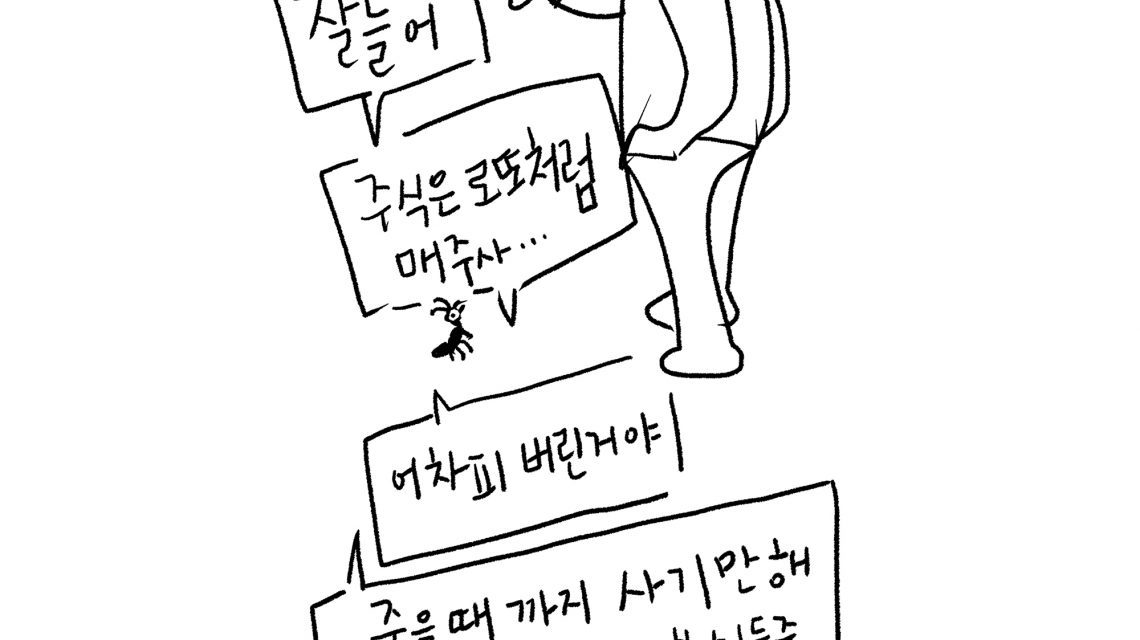 잘들어
주식은 로또처럼
매주사...
어차피 버린거야
죽을때 까지 사기만해